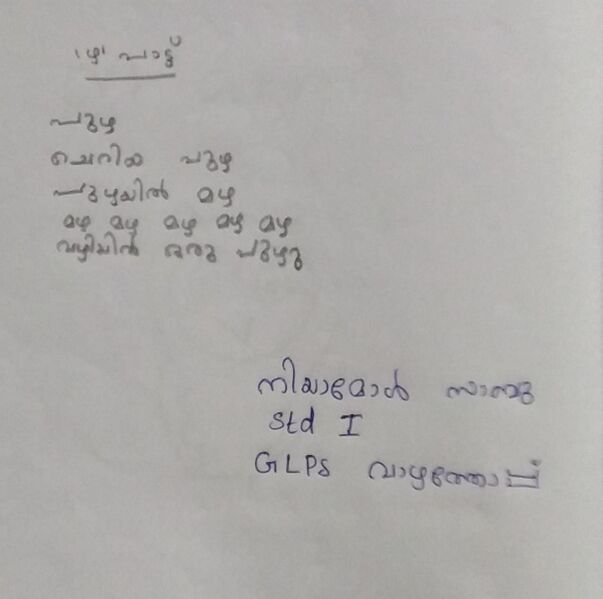 'ഴ' പാട്ട്
പുഴ
ചെറിയ പുഴ
പുഴയിൽ മഴ
മഴ മഴ മഴ മഴ മഴ
വഴിയിൽ ഒരു പുഴു
നിയാമോൾ സാബു
Std I
GLPS വാഴത്തോപ്പ്